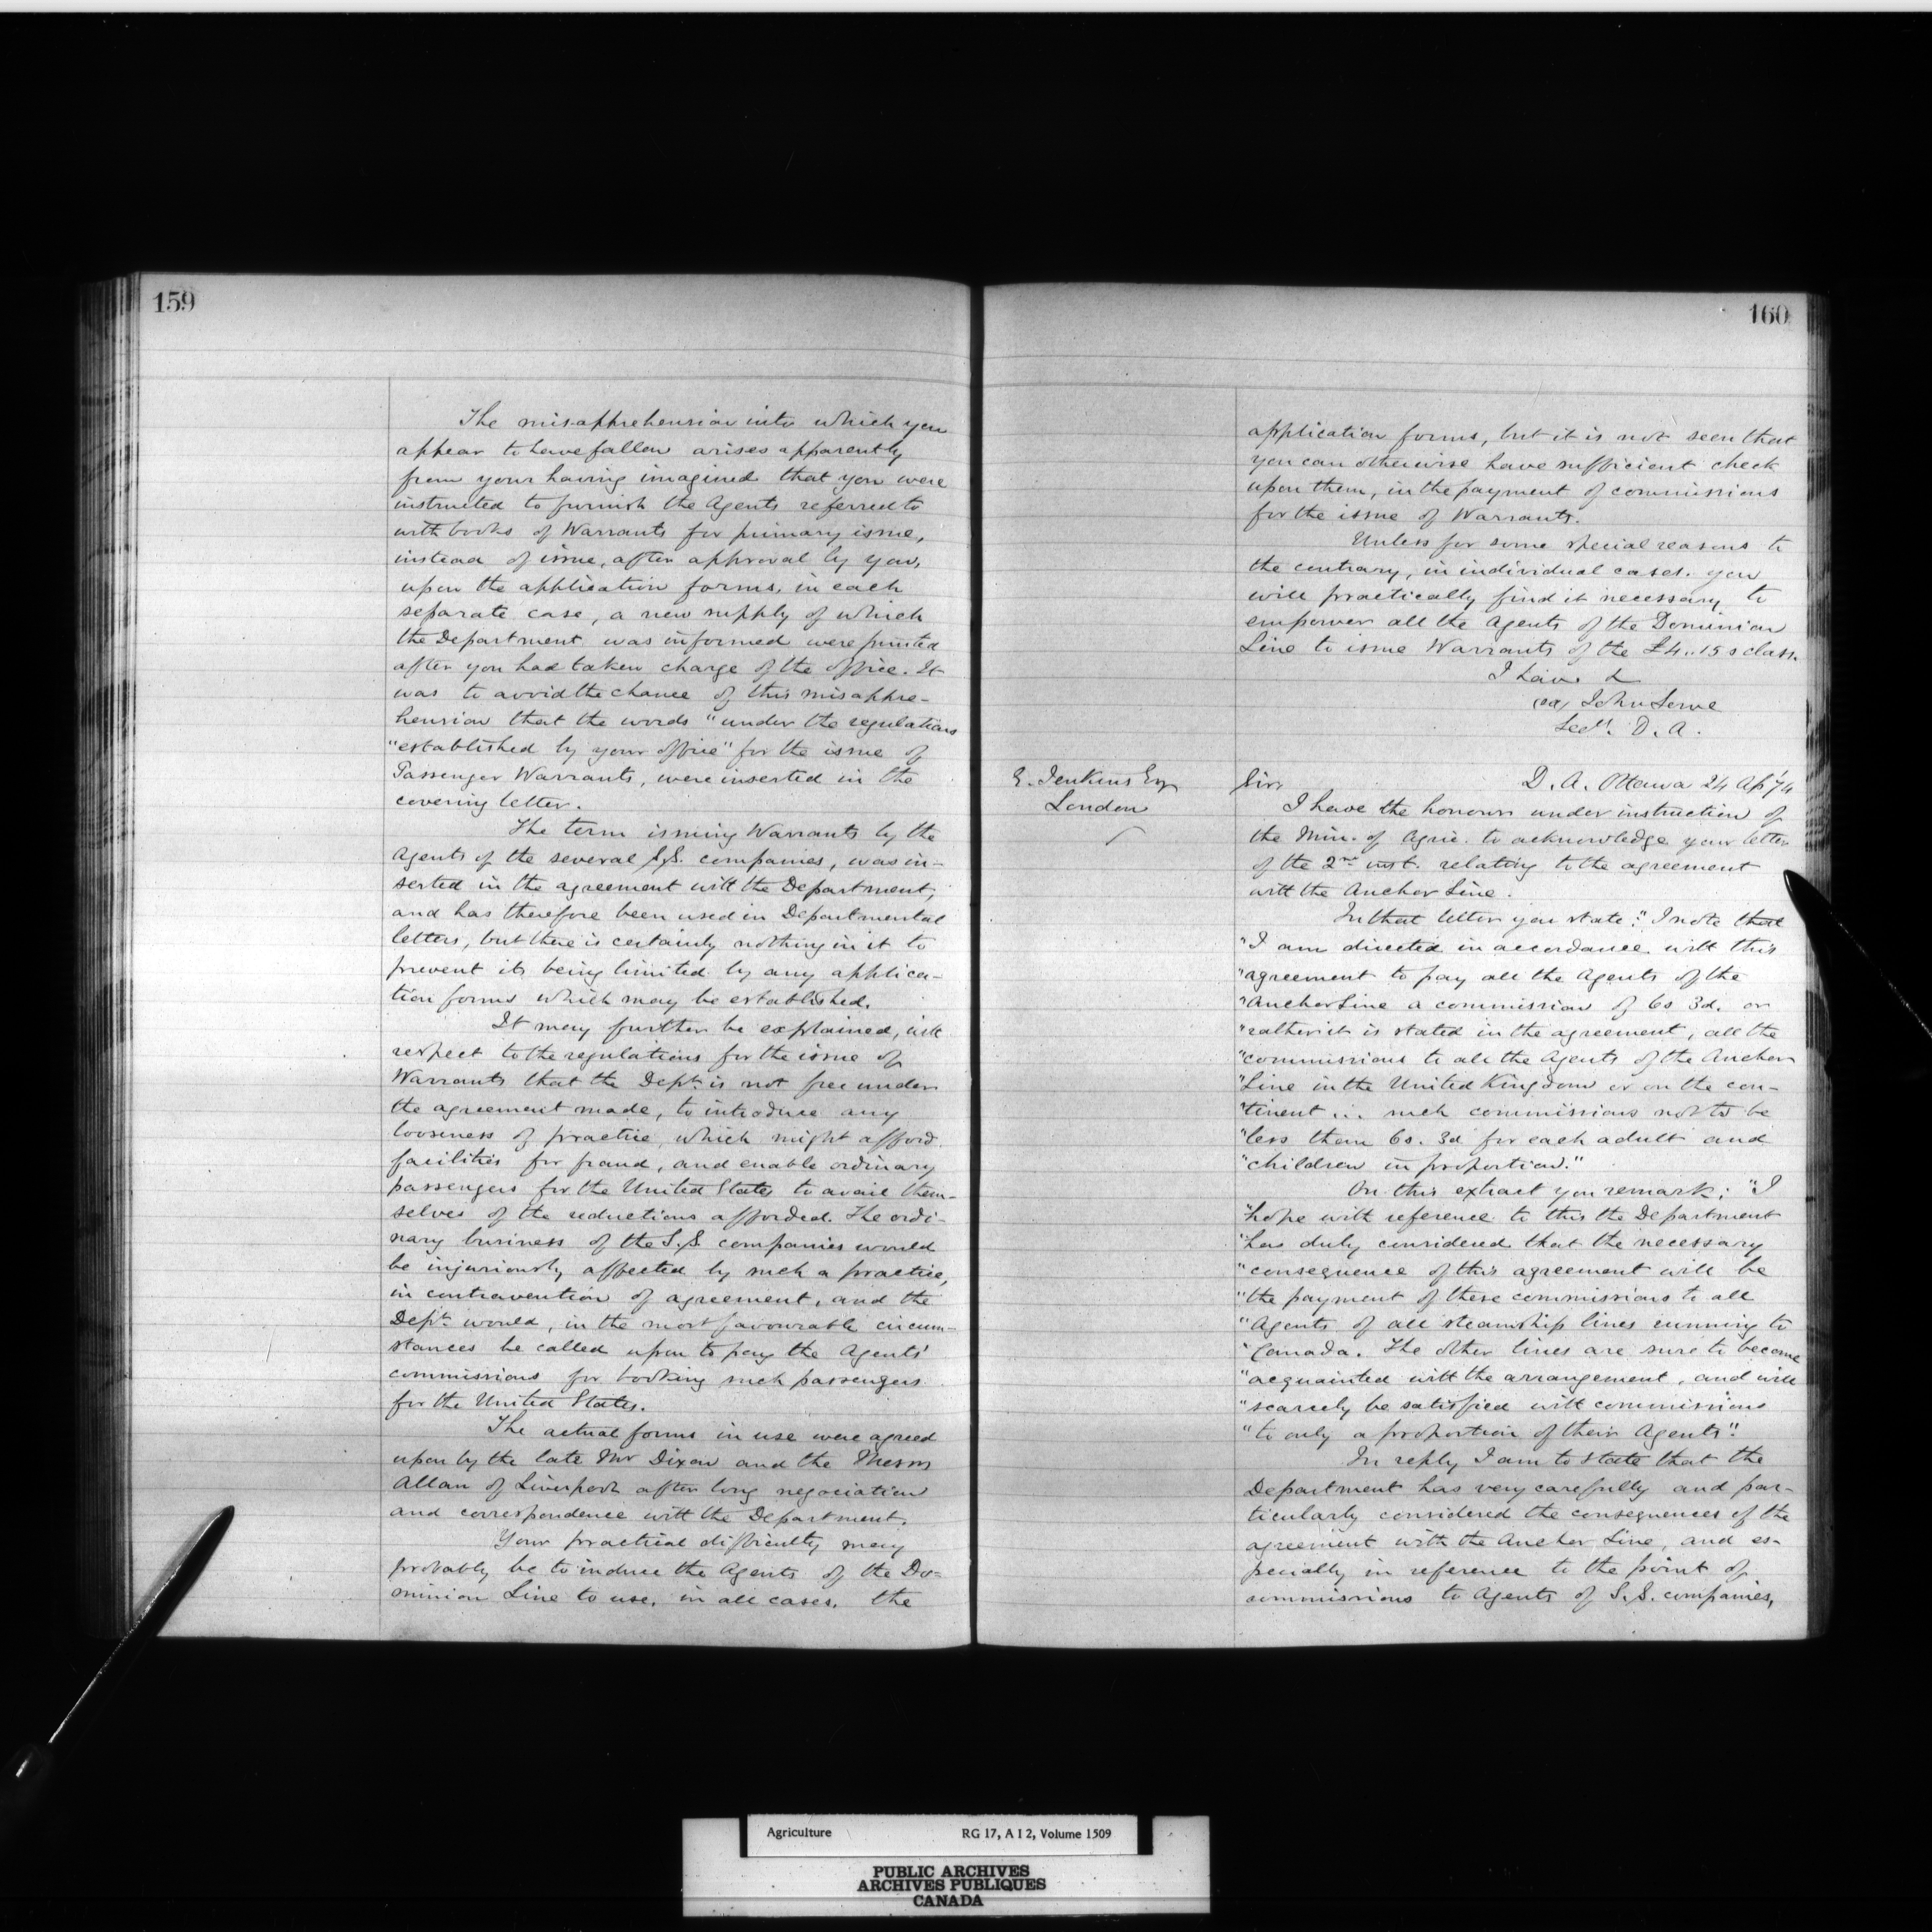 159
The misapprehension into which you
appear to have fallen arises apparently
from your having imagined that you were
instructed to furnish the Agents referred to
with books of Warrants for primary issue,
instead of issue, after approval by you,
upon the application forms, in each
separate case, a new supply of which
the Department was informed were printed
after you had taken charge of the office. It
was to avoid the chance of this misappre-
hension that the words "under the regulations
"established by your office" for the issue of
Passenger Warrants, were inserted in the
covering letter.
The term issuing Warrants by the
Agents of the several S.S. companies, was in-
serted in the agreement with the Department,
and has therefore been used in Departmental
letters, but there is certainly nothing in it to
prevent its being limited by any applica-
tion forms which may be established.
It may further be explained, with
respect to the regulations for the issue of
Warrants that the Dept. is not free under
the agreement made, to introduce any
looseness of practice, which might afford
facilities for fraud, and enable ordinary
passengers for the United States to avail them-
selves of the reductions afforded. The ordi-
nary business of the S.S. companies would
be injuriously affected by such a practice,
in contravention of agreement, and the
Dept. would, in the most favourable circum-
stances be called upon to pay the Agents'
commissions for booking such passengers
for the United States.
The actual forms in use were agreed
upon by the late Mr Dixon and the Messrs
Allan of Liverpool after long negociation
and correspondence with the Department.
Your practical difficulty may
probably be to induce the Agents of the Do-
minion Line to use, in all cases, the
160
application forms, but it is not seen that
you can otherwise have sufficient check
upon them, in the payment of commissions
for the issue of Warrants.
Unless for some special reasons to
the contrary, in individual cases, you
will practically find it necessary to
empower all the Agents of the Dominion
Line to issue Warrants of the £4..15s class.
I have &
(sd) John Lowe
Secy. D. A.
E. Jenkins Esq
London
Sir, D. A. Ottawa 24 Ap '74
I have the honour under instruction of
the Min. of Agric. to acknowledge your letter
of the 2nd inst. relating to the agreement
with the Anchor Line.
In that letter you state: "I note that
"I am directed in accordance with this
"agreement to pay all the Agents of the
"Anchor Line a commission of 6s 3d. or
"rather it is stated in the agreement, all the
"commissions to all the Agents of the Anchor
"Line in the United Kingdom or on the con-
"tinent ... such commissions not to be
"less than 6s. 3d for each adult and
"children in proportion."
On this extract you remark: "I
"hope with reference to this the Department
"has duly considered that the necessary
"consequence of this agreement will be
"the payment of these commissions to all
"Agents of all steamship lines running to
"Canada. The other lines are sure to become
"acquainted with the arrangement, and will
"scarcely be satisfied with commissions
"to only a proportion of their Agents".
In reply I am to state that the
Department has very carefully and par-
ticularly considered the consequences of the
agreement with the Anchor Line, and es-
pecially in reference to the point of
commissions to Agents of S.S. companies,
Agriculture RG 17, A I 2, Volume 1509
PUBLIC ARCHIVES
ARCHIVES PUBLIQUES
CANADA